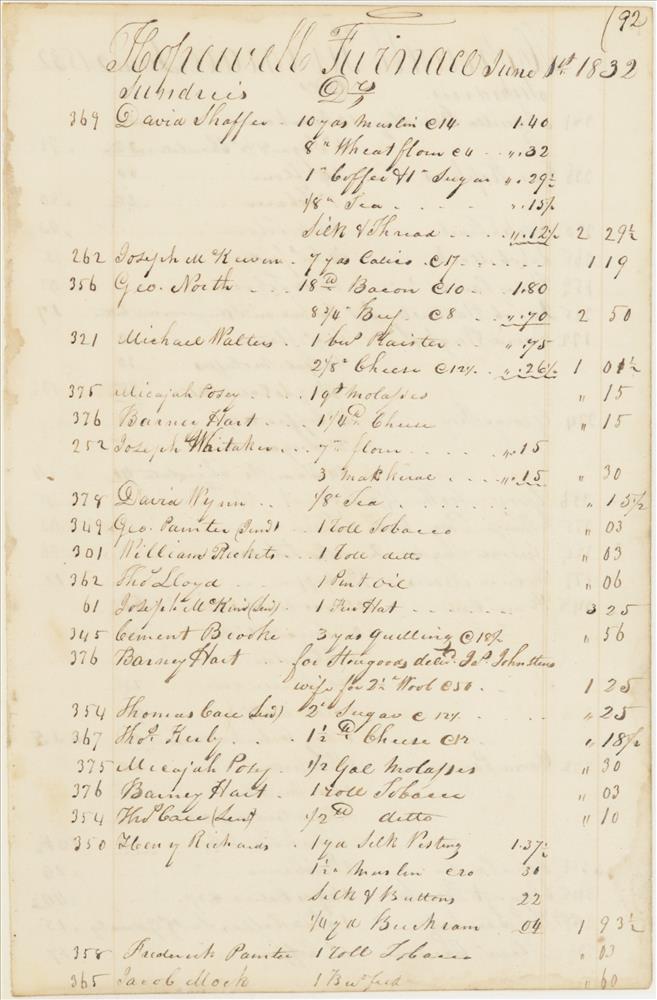 (92
Hopewell Furnace June 1st 1832
Sundries Drs
369 David Shaffer - 10 yds Muslin @14 1.40
8 " Wheat flour @4 - " .32
1 " Coffee & 1 " Sugar " . 29½
1/8 " Tea - - - - " .15½
Silk & Thread - - - - " .12½ 2 29½
262 Joseph McKewen - 7 yds Calico @17 - - - - - - 1 19
356 Geo. North - - - 18 lb Bacon @10 - 1.80
8 3/4 " Beef - @8 - - " .70 2 50
321 Michael Walters - 1 bus Plaister - - " .75
2 1/8 " Cheese @12½ - " .26½ 1 01½
375 Micajah Posey - - - 1 qt Molasses " 15
376 Barney Hart - - - 1 1/4 lb Cheese " 15
252 Joseph Whitaker - - - 7 " flour - - - - - " .15
3 Makkerae - - - " .15 " 30
378 David Wynn - - 1/8 " Tea - - - - - - - " 15½
349 Geo. Painter (Junr) - 1 roll Tobacco " 03
301 William Rickets - - 1 roll ditto " 03
362 Thos Lloyd - - 1 Pint Oil " 06
61 Joseph McKims (Senr) - 1 Hat - - - - - - 3 25
345 Clement Brooke 3 yds Quilling @18½ " 56
376 Barney Hart - - for Stovgoods deld Jas Johnstons
wife for 2½ " Wool @50 - 1 25
354 Thomas Care (Senr) 2 " Sugar @12½ - - - " 25
367 Thos Kerby - - - 1½ lb Cheese @12 " 18½
375 Micajah Posey - 1/2 Gal Molasses " 30
376 Barney Hart - 1 roll Tobacco " 03
354 Thos Care (Senr) 1/2 lb ditto " 10
350 Henry Richards - 1 yd Silk Vesting 1.37½
1½ " Muslin @20 30
Silk & Buttons 22
1/4 yd Buckram 04 1 93½
358 Frederick Painter 1 roll Tobacco " 03
365 Jacob Mock 1 Bus feed " 60